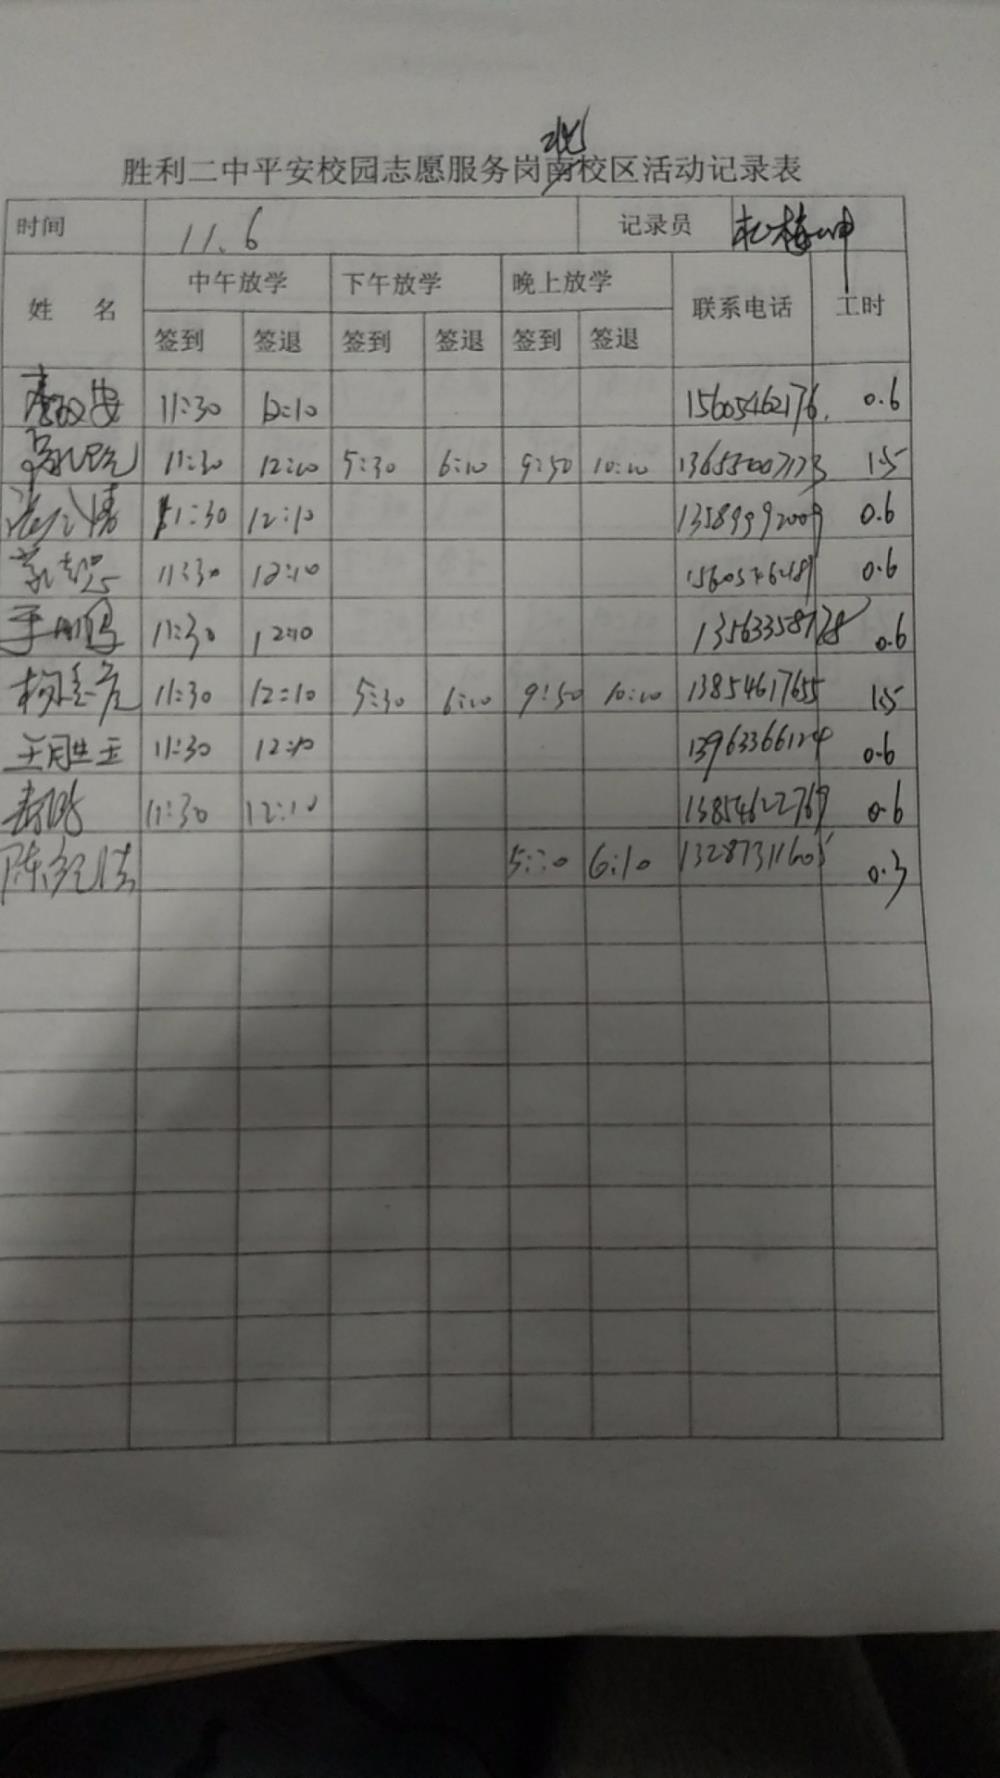 北
胜利二中平安校园志愿服务岗南校区活动记录表
时间 11.6 记录员
姓 名 中午放学 下午放学 晚上放学 联系电话 工时
签到 签退 签到 签退 签到 签退
11:30 12:10 15605462176. 0.6
11:30 12:10 5:30 6:10 9:50 10:10 1.5
11:30 12:10 13589992009 0.6
11:30 12:10 0.6
于刚 11:30 12:10 13563358728 0.6
11:30 12:10 5:30 6:10 9:50 10:10 13854617655 1.5
王胜玉 11:30 12:10 13963366124 0.6
11:30 12:10 13854622769 0.6
陈 5:30 6:10 13287311605 0.3